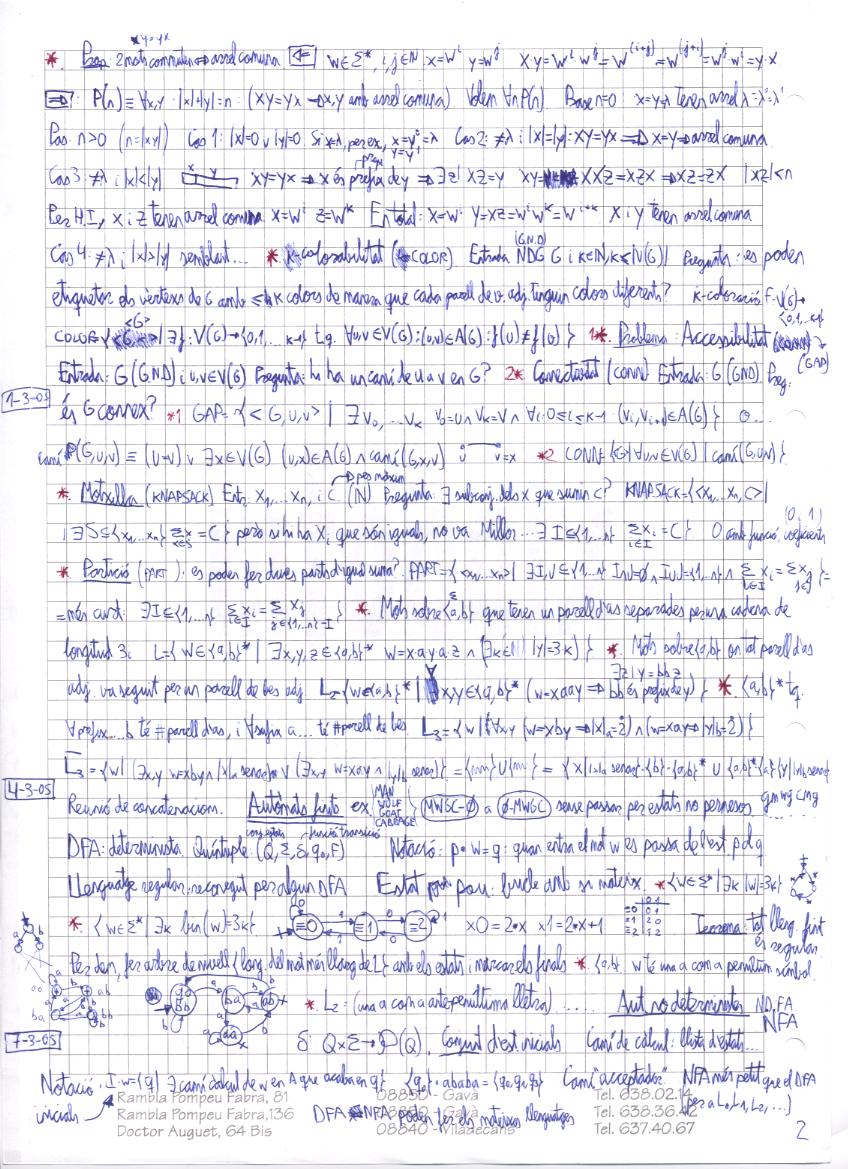 xy=yx
* Prop: 2 mots commuten ⇔ arrel comuna ⇐ w∈Σ*, i,j∈ℕ x=wⁱ y=wʲ x·y=wⁱ·wʲ=w^(i+j)=w^(j+i)=wʲ·wⁱ=y·x
⇒: P(n) ≡ ∀x,y |x|+|y|=n (xy=yx → x,y amb arrel comuna). Volem ∀n P(n). Base n=0: x=y=λ Tenen arrel λ=λ⁰=λ¹
Pas n>0 (n=|xy|) Cas 1: |x|=0 ∨ |y|=0. Si x=λ, per ex, x=y⁰=λ y=y¹ Cas 2: ≠λ i |x|=|y|: xy=yx ⇒ x=y ⇒ arrel comuna
Cas 3: ≠λ i |x|<|y| xy=yx ⇒ x és prefix de y ⇒ ∃z| xz=y xy= xxz=xzx ⇒ xz=zx |xz|<n
Per H.I, x i z tenen arrel comuna x=wⁱ z=wᵏ En total: x=wⁱ y=xz=wⁱwᵏ=wⁱ⁺ᵏ x i y tenen arrel comuna
Cas 4: ≠λ i |x|>|y| semblant... * k-colorabilitat (COLOR) Entrada (G.N.D) G i k∈ℕ, k≤|V(G)| Pregunta: es poden
etiquetar els vèrtexs de G amb ≤k colors de manera que cada parell de v. adj. tinguin colors diferents? k-coloració f: V(G)→{0,1,..k-1}
COLOR={<G>| ∃f: V(G)→{0,1,...k-1} t.q. ∀u,v∈V(G): (u,v)∈A(G): f(u)≠f(v)} 1* Problema: Accessibilitat (GAP)
Entrada: G (G.N.D) i u,v∈V(G) Pregunta: hi ha un camí de u a v en G? 2* Connectivitat (conn) Entrada: G (GND) Preg:
1-3-05
és G connex? *1 GAP={<G,u,v> | ∃v₀,...vₖ v₀=u ∧ vₖ=v ∧ ∀i:0≤i≤k-1 (vᵢ,vᵢ₊₁)∈A(G)} O...
camí P(G,u,v) ≡ (u=v) ∨ ∃x∈V(G) (u,x)∈A(G) ∧ camí(G,x,v) u v=x *2 CONN={<G> ∀u,v∈V(G) | camí(G,u,v)}
* Motxilla (KNAPSACK) Entr. x₁,...xₙ, i C. (ℕ) pes màxim Pregunta: ∃ subconj. dels x que sumin c? KNAPSACK={<x₁,...xₙ,C>|
| ∃S⊆{x₁,...xₙ} Σx=C} però si hi ha xᵢ que són iguals, no va. Millor... ∃I⊆{1,..n} Σxᵢ=C} O amb funció, coeficients (0,1)
* Partició (PART): es poden fer dues parts d'igual suma? PART={<x₁...xₙ>| ∃I,J⊆{1,..n} I∩J=∅ ∧ I∪J={1,..n} ∧ Σxᵢ=Σxⱼ}=
=més curt: ∃I⊆{1,..n} Σxᵢ=Σxⱼ} * Mots sobre {a,b} que tenen un parell d'as separades per una cadena de
longitud 3. L={w∈{a,b}* | ∃x,y,z∈{a,b}* w=x·a·y·a·z ∧ (∃k∈ℕ |y|=3·k)} * Mots sobre {a,b} on tot parell d'as
adj. va seguit per un parell de bes adj. L₂={w∈{a,b}* | ∀x,y∈{a,b}* (w=xaay ⇒ bb és prefix de y)} ∃z|y=bbz * {a,b}* t.q.
∀prefix...b té # parell d'as, i ∀sufix a... té # parell de bes. L₃={w| ∀x,y (w=xby ⇒ |x|ₐ=2̇) ∧ (w=xay ⇒ |y|_b=2̇)}
L̄₃={w| (∃x,y w=xby ∧ |x|ₐ senar) ∨ (∃x,y w=xay ∧ |y|_b senar)} = {""} ∪ {""} = {x| |x|ₐ senar}·{b}·{a,b}* ∪ {a,b}*{a}{y| |y|_b senar}
4-3-05
Reunió de concatenacions. Autòmats finits ex MAN WOLF GOAT CABBAGE MWGC-∅ a ∅-MWGC sense passar per estats no permesos gmwg cmg
DFA: determinista. Quíntuple (Q,Σ,δ,q₀,F) conj estats funció transició Notació: p·w=q: quan entra el mot w es passa de l'est. p al q
Llenguatge regular: reconegut per algun DFA Estat pou: bucle amb si mateix. * {w∈Σ* | ∃k |w|=3k}
* {w∈Σ* | ∃k bin(w)=3k} ≡0 ≡1 ≡2 x0=2·x x1=2·x+1 Teorema: tot lleng. finit
és regular
Per dem, fer arbre de nivell {long. del mot més llarg de L} amb els estats i marcar els finals * {a,b} w té una a com a penúltim símbol.
* L₂=(una a com a antepenúltima lletra)..... Aut. no deterministes ND.FA
NFA
7-3-05
δ: Q×Σ→P(Q), Conjunt d'est. inicials Camí de càlcul: llista d'estats...
Notació I·w={q| ∃camí càlcul de w en A que acaba en q} {q₀}·ababa={q₀,q₁,q₃} Camí "acceptador" NFA més petit que el DFA
inicials Rambla Pompeu Fabra, 81 08850 - Gavà Tel. 638.02.14 per a L₀,L₁,L₂,...)
Rambla Pompeu Fabra,136 08850 - Gavà Tel. 638.36.42
DFA NFA poden fer els mateixos llenguatges
Doctor Auguet, 64 Bis 08840 - Viladecans Tel. 637.40.67
2